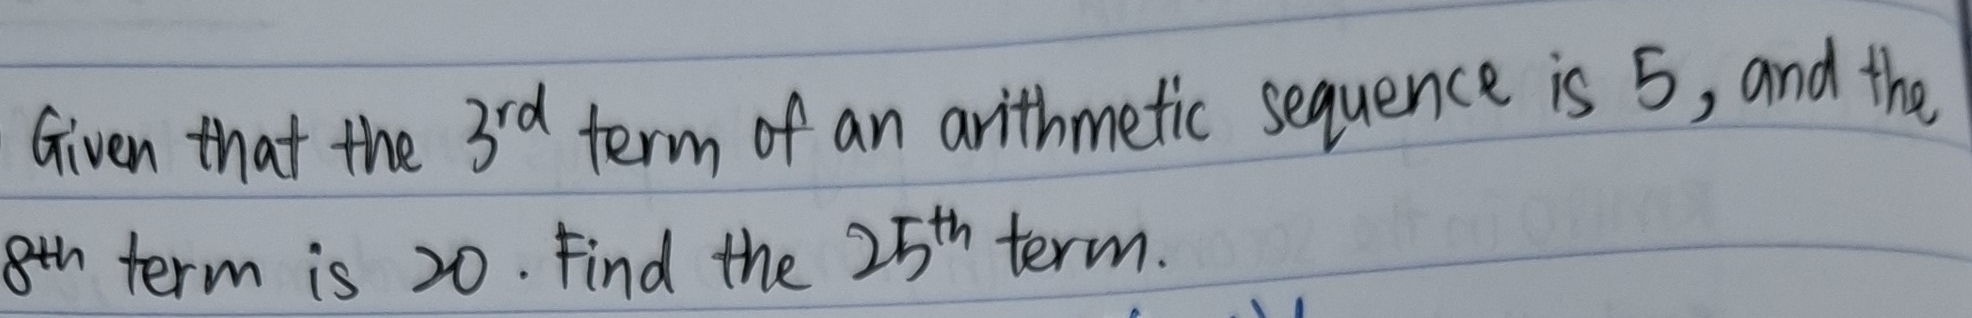 Given that the 3rd term of an arithmetic sequence is 5, and the
8th term is 20. Find the 25th term.